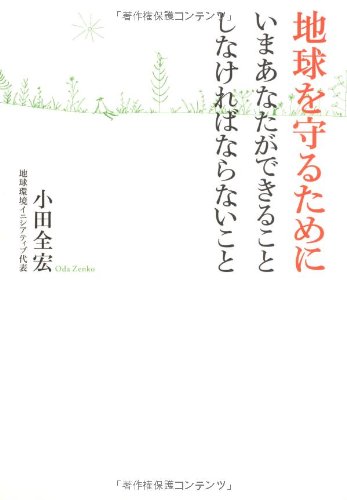 「著作権保護コンテンツ」
「著作権保護コンテンツ」
地球を守るために
いまあなたができること
しなければならないこと
小田全宏
Oda Zenko
地球環境イニシアティブ代表
「著作権保護コンテンツ」